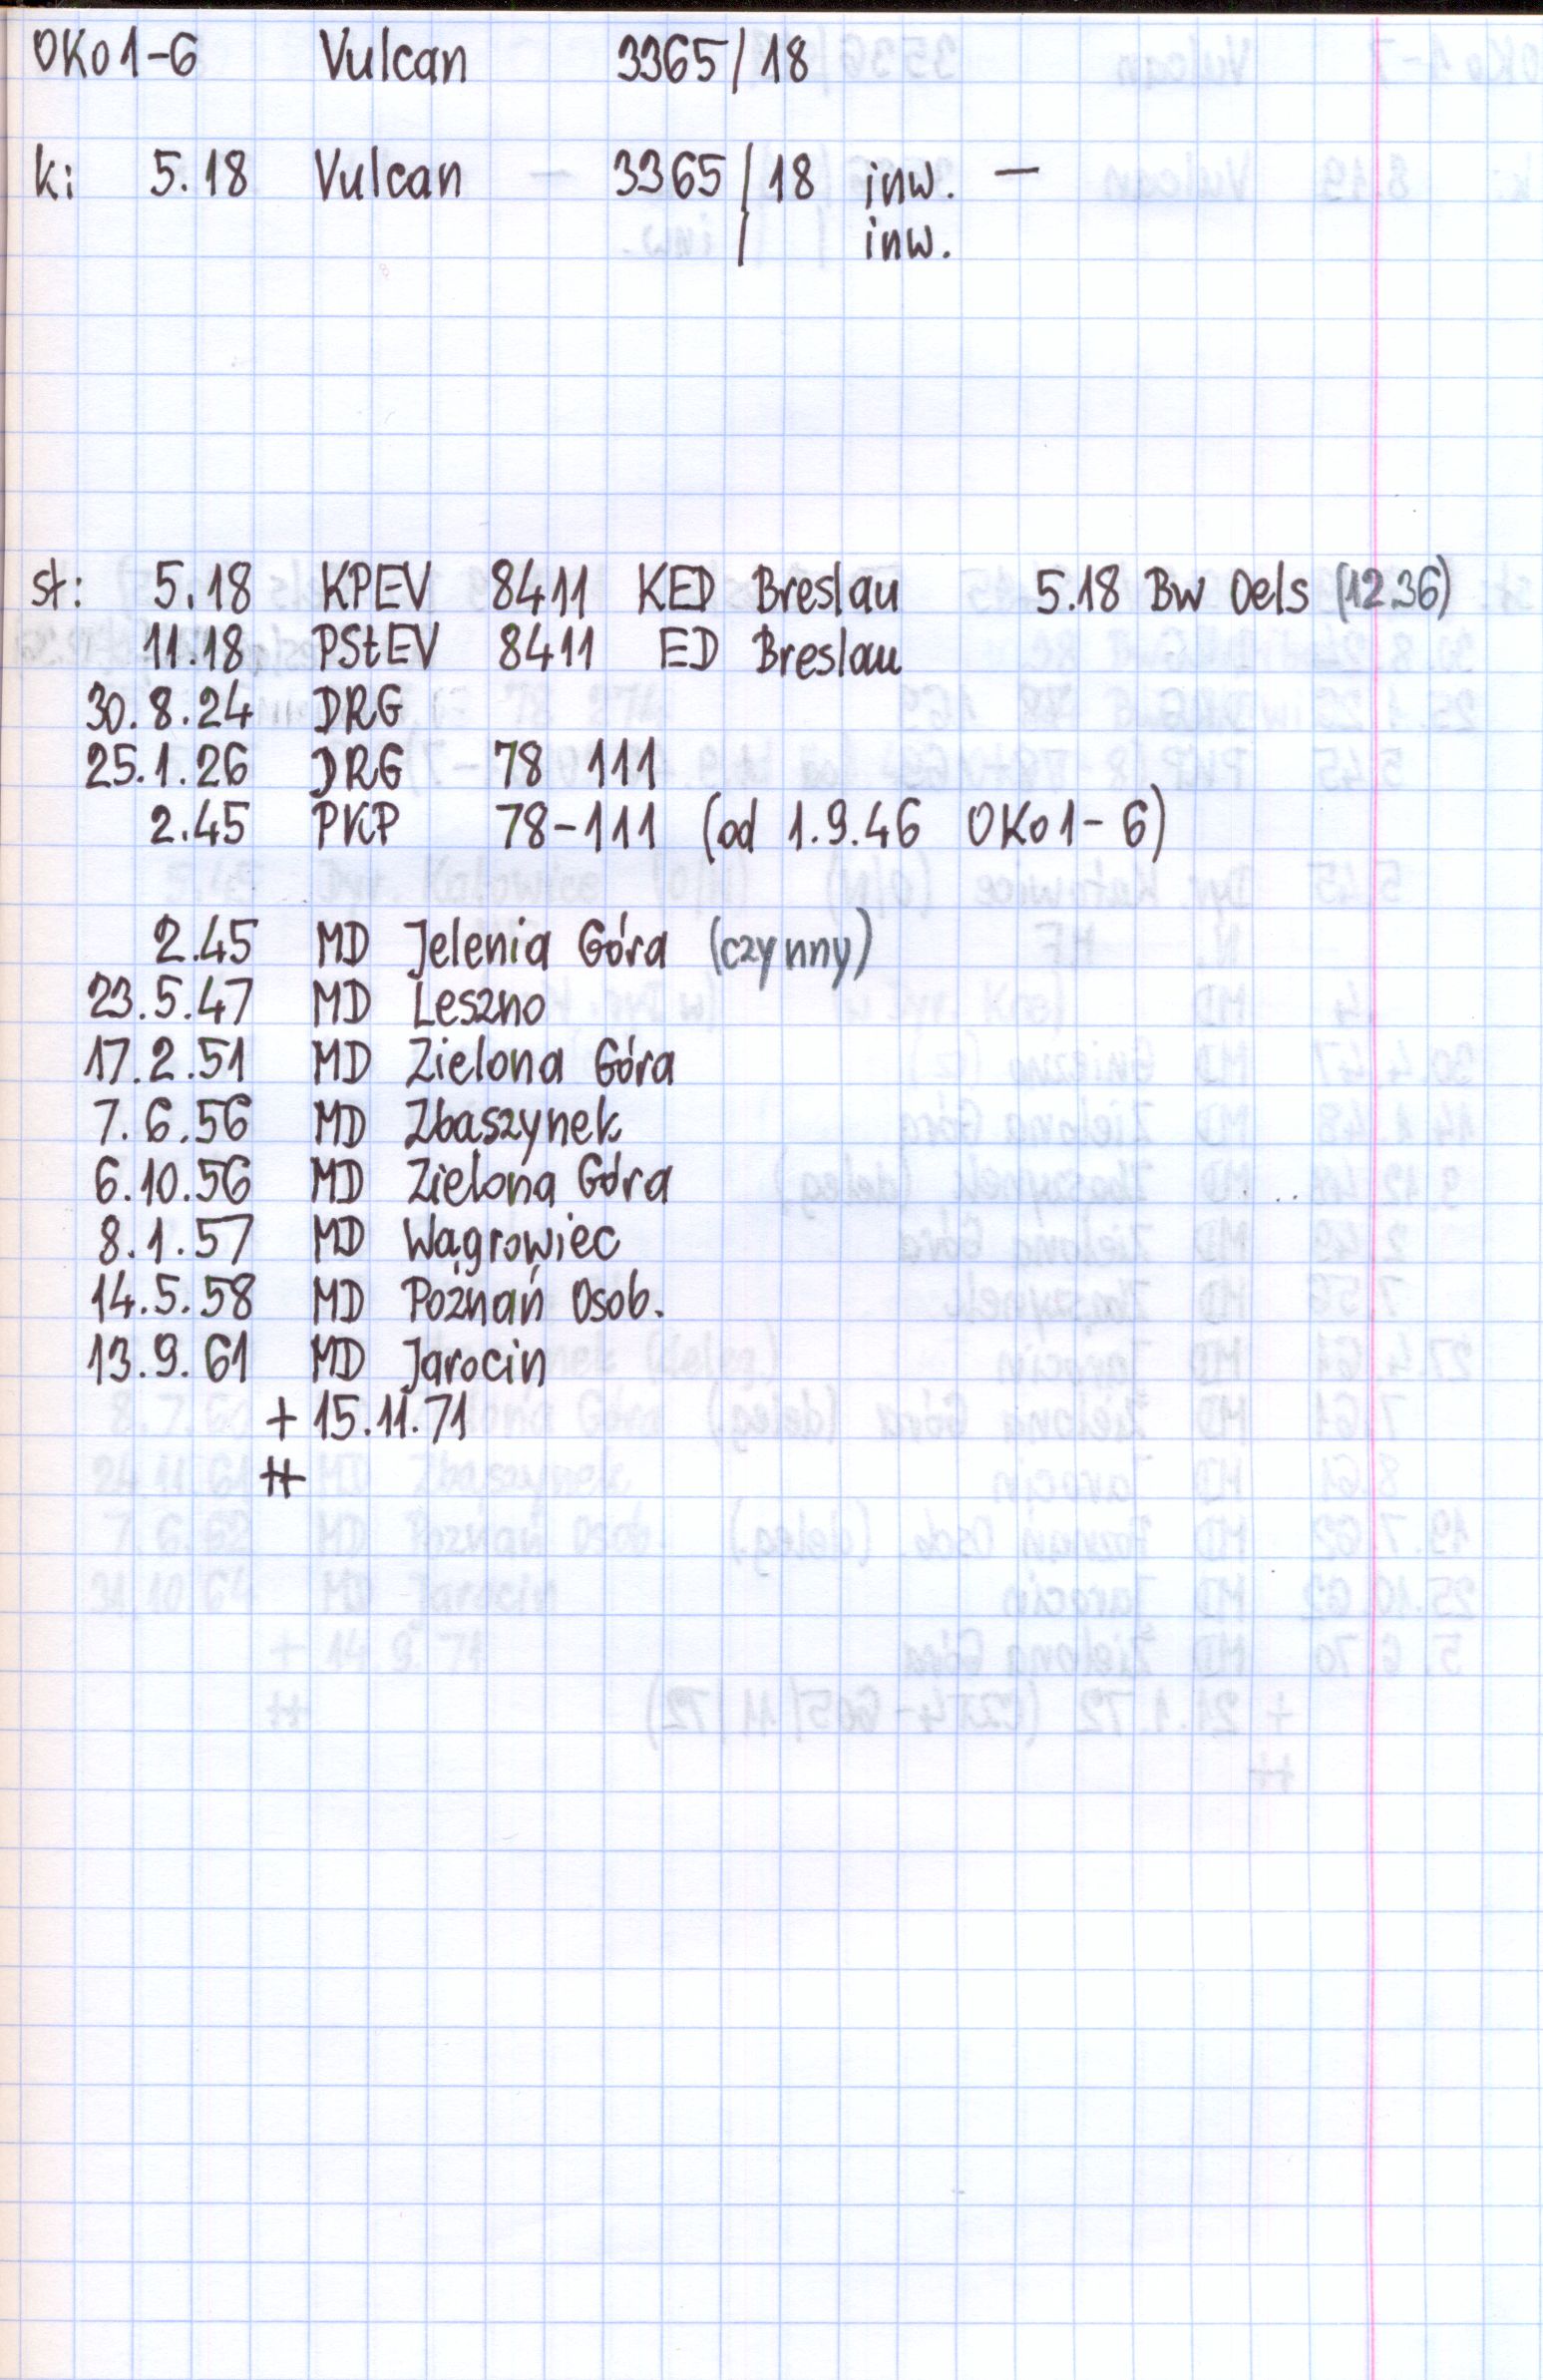 OKo1-6 Vulcan 3365/18
k: 5.18 Vulcan - 3365/18 inw. -
/ inw.
st: 5.18 KPEV 8411 KED Breslau 5.18 Bw Oels (12.36)
11.18 PStEV 8411 ED Breslau
30.8.24 DRG
25.1.26 DRG 78 111
2.45 PKP 78-111 (od 1.9.46 OKo1-6)
2.45 MD Jelenia Góra (czynny)
23.5.47 MD Leszno
17.2.51 MD Zielona Góra
7.6.56 MD Zbaszynek
6.10.56 MD Zielona Góra
8.1.57 MD Wągrowiec
14.5.58 MD Poznań Osob.
13.9.61 MD Jarocin
+ 15.11.71
++